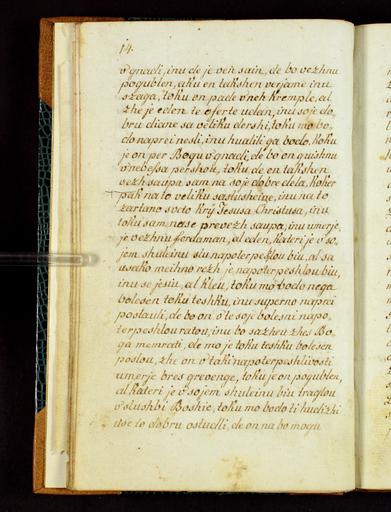 14.
v'gnadi, inu de je veń sain, de bo vezhnu
pogublen, aku en takshen verjame inu
szaga, toku on pade v'neh kremple, al
zhe je eden te oferte udan, inu soje do,
bru diane sa veliku dershi, toku mo bo,
do naprei nesli, inu hualili ga bodo, koku
je on per Bogu v'gnadi, de bo on guishnu
v'nebessa pershou, toku, de en takshen
vezh saupa sam na soje dobre dela, koker
pak na to veliku saslusheine, inu na to
zartano sveto Kry Jesusa Christusa, inu
toku sam na se prevezh saupa, inu umerje,
je vezhnu ferdaman, al eden, kateri je v'so,
jem shuleinu slu napoterpeslou biu, al sa
usako meihno rezh je napoterpeshlou biu,
inu se jesiu, al kleu, toku mo bodo nega
bolesen toku teshku, inu superno naprei
postauli, de bo on v'te soje bolesni napo,
terpeshlou ratou, inu bo sazheu zhes Bo,
ga memrati, de mo je toku teshku bolesen
poslou, zhe on v'taki napoterpeshlivosti
umerje bres grevenge, toku je on pogublen,
al kateri je v'sojem shuleinu biu traglou
v'slushbi Boshie, toku mo bodo ti hudizhi
use to dobru ostudli, de on na bo mogu